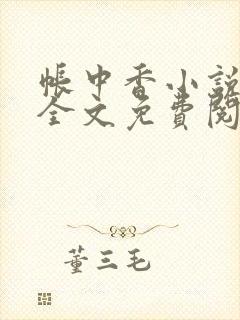 帐中香小説
全文免費閱
董三毛